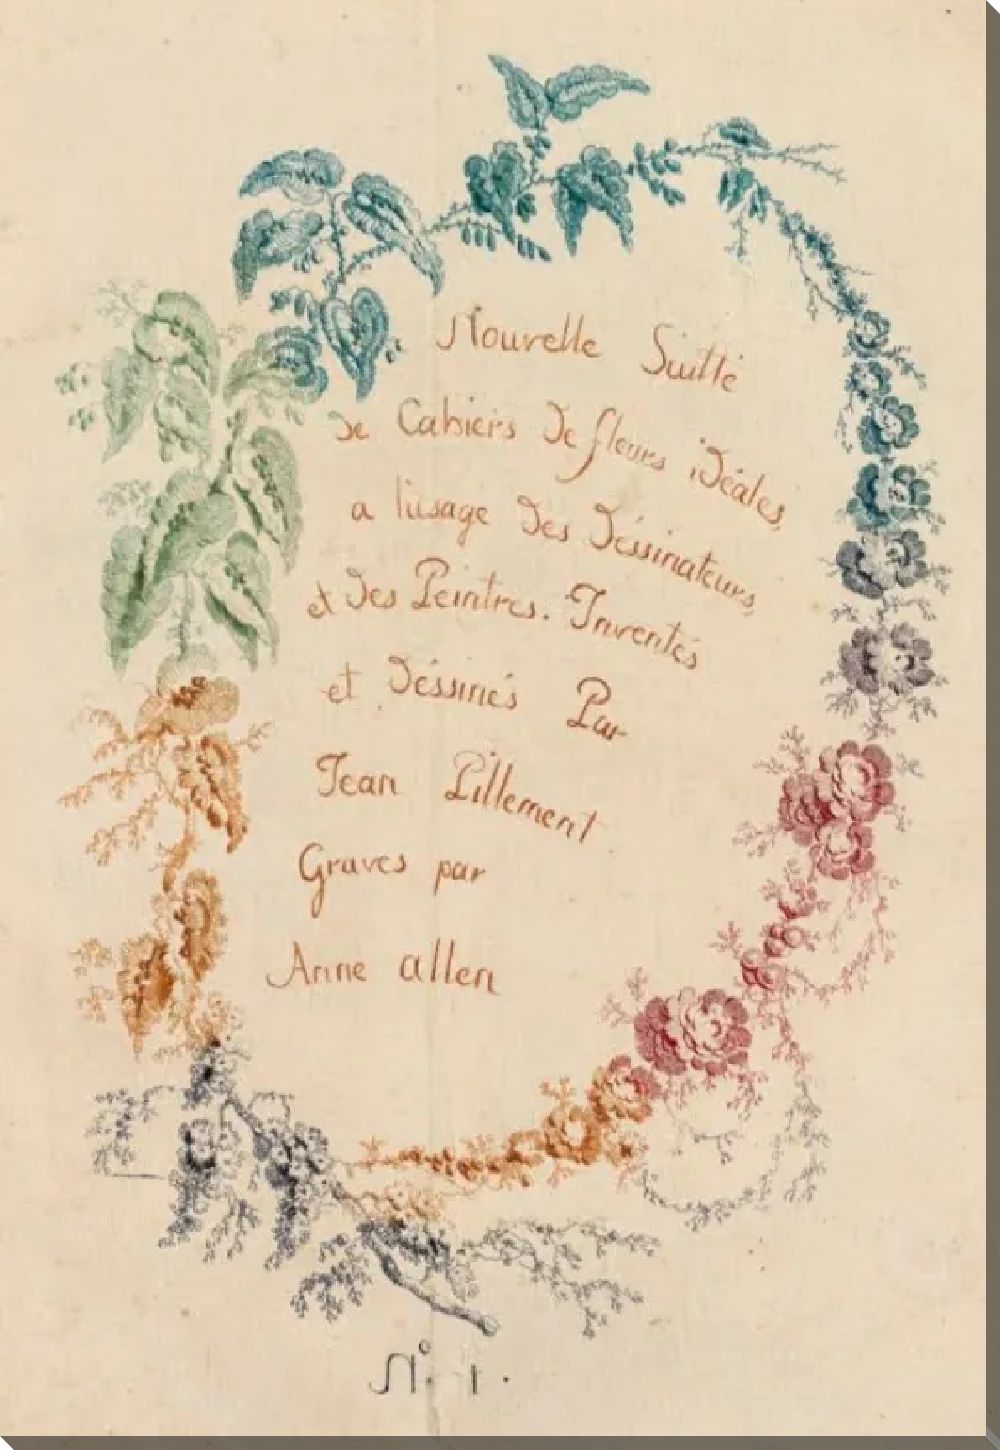 Nouvelle Suitte
de Cahiers de fleurs idéales,
a l'usage des Déssinateurs,
et des Peintres. Inventés
et Déssinés Par
Jean Pillement
Graves par
Anne allen
N.º 1.